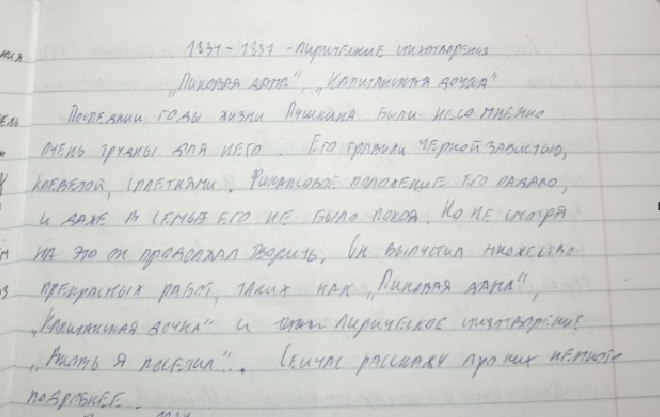 1834 - 1837 - лирические стихотворения
„Пиковая дама", „Капитанская дочка"
Последнии годы жизни Пушкина были несомненно
очень трудны для него. Его травили черной завистью,
клеветой, сплетнями. Финансовое положение его падало,
и даже в семье его не было покоя. Но не смотря
на это он продолжал творить. Он выпустил множество
прекрасных работ, таких как „Пиковая дама",
„Капитанская дочка" и лирическое стихотворение
„Вновь я посетил"... Сейчас расскажу про них немного
подробнее.